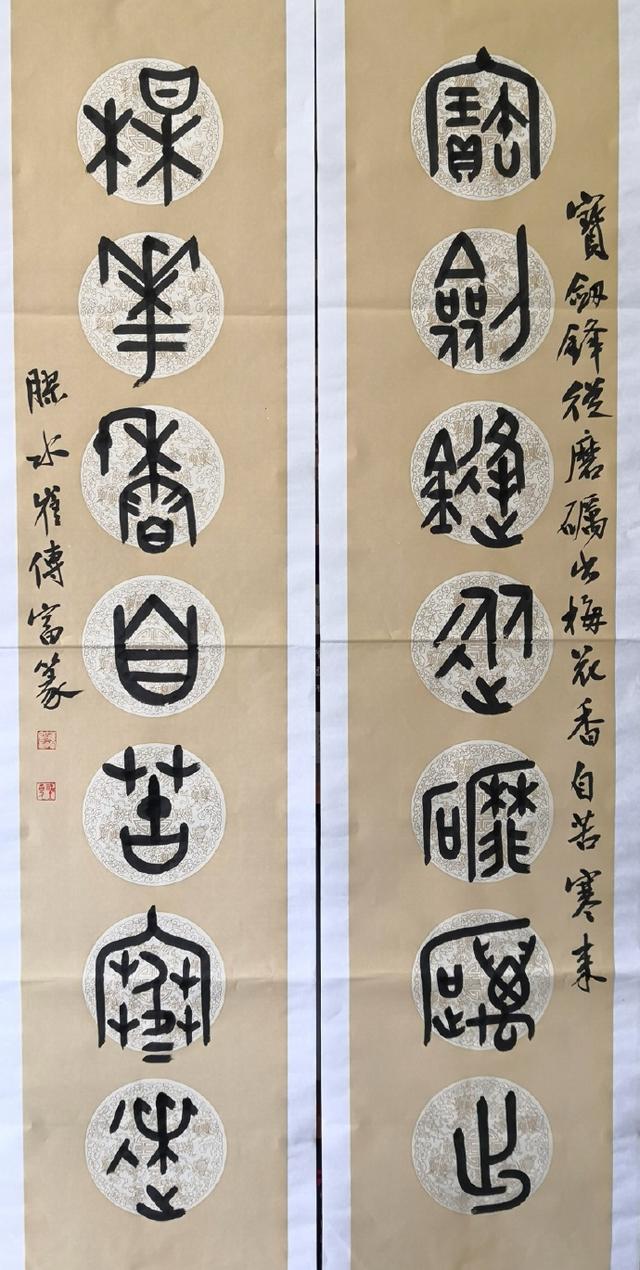 寶劍鋒從磨礪出
寶劍鋒從磨礪出梅花香自苦寒來
某華香自苦寒來
膠水崔傳富篆